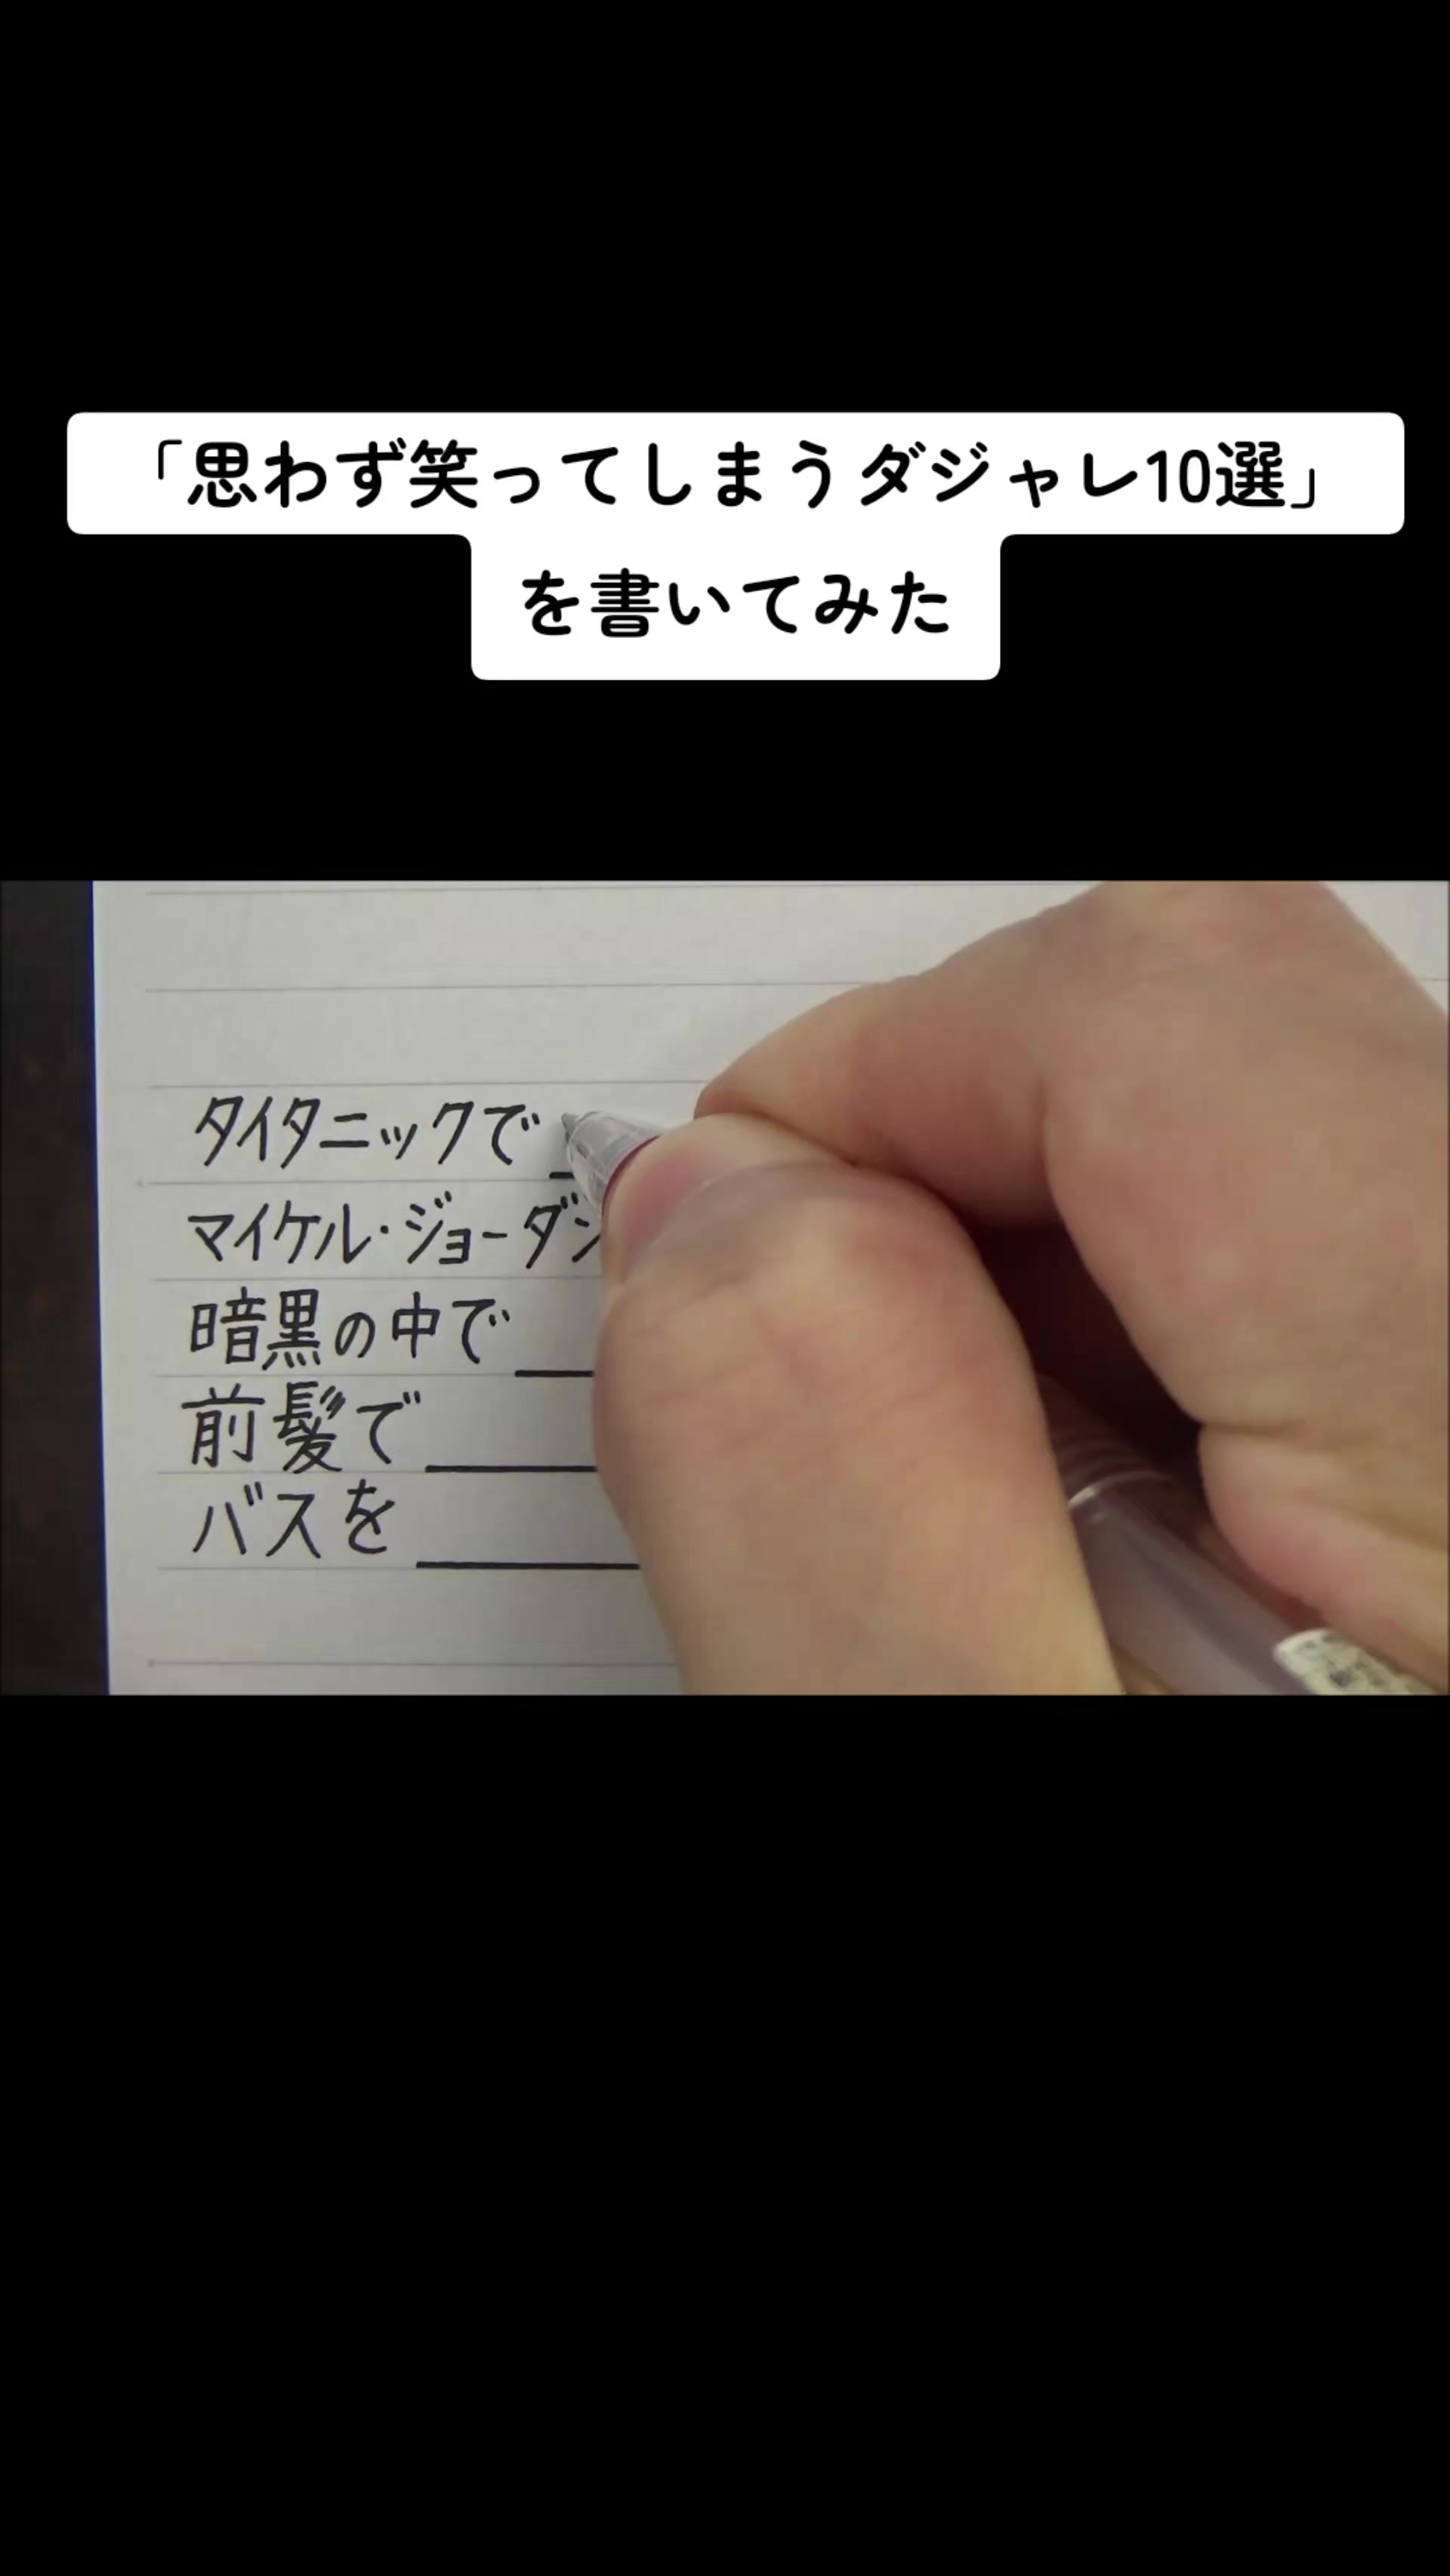 「思わず笑ってしまうダジャレ10選」
を書いてみた
タイタニックで
マイケル・ジョーダン
暗黒の中で
前髪で
バスを